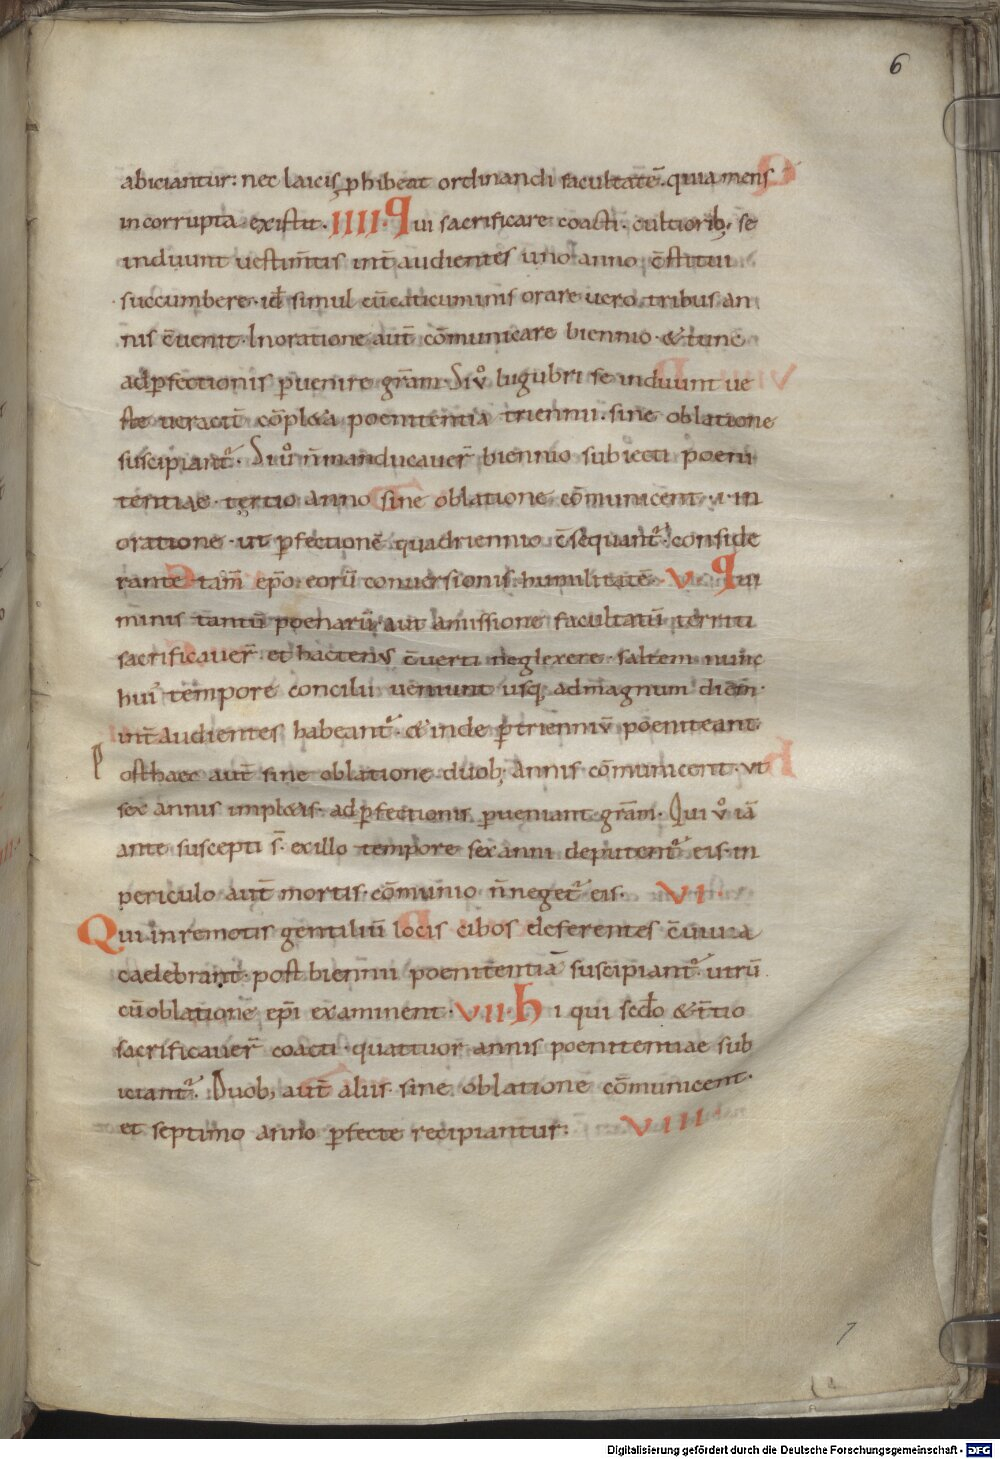 6
abiciantur: nec laicis ꝓhibeat ordinandi facultatē. quia mens
incorrupta existit. IIII. Qui sacrificare coacti. cultiorib; se
induunt uestim̄tis int̄ audientes uno anno c̄stitui
succumbere. id̄ simul cū caticuminis orare uero tribus an
nis c̄uenit. In oratione aut̄ cōmunicare biennio. & tunc
ad ꝑfectionis ꝑuenire gr̄am. Si uͦ lugubri se induunt ue
ste ueractū cōpl&a poenitentia triennii. sine oblatione
suscipiant᷒. Si uͦ n̄ manducauer̄ biennio subiecti poeni
tentiae. tertio anno sine oblatione cōmunicent. .i. in
oratione. ut ꝑfectionē quadriennio c̄sequant᷒. conside
rante tam̄ ep̄o. eorū conuersionis humilitatē. V. Qui
minis tantū poenarū. aut amissione facultatū territi
sacrificauer̄. et hactenus c̄uerti neglexere. saltem nunc
hui᷒ tempore concilii ueniunt usq; ad magnum diem.
int̄ audientes habeant᷒. & inde ꝑ trienniū poeniteant
Post haec aut̄ sine oblatione duob; annis cōmunicent. ut
sex annis impl&is. ad ꝑfectionis ꝑueniant gr̄am. Qui uͦ iā
ante suscepti s̄. ex illo tempore sex anni deputent᷒ eis. in
periculo aut̄ mortis. cōmunio n̄ neget᷒ eis. VI.
Qui in remotis gentiliū locis cibos deferentes c̄uiuia
caelebrant. post biennii poenitentiā suscipiant᷒. utrū
cū oblatione ep̄i examinent. VII. Hi qui sec̄do & t̄tio
sacrificauer̄ coacti. quattuor annis poenitentiae sub
iciant᷒. Duob; aut̄ aliis sine oblatione cōmunicent.
et septimo anno ꝑfecte recipiantur: VIII
Digitalisierung gefördert durch die Deutsche Forschungsgemeinschaft - DFG